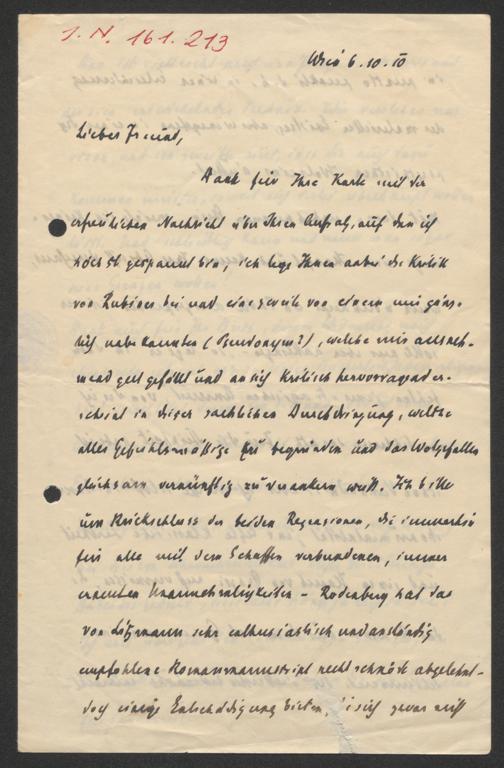 J. N. 161.213
Wien 6.10.10
Lieber Freund,
Dank für Ihre Karte mit der
erfreulichen Nachricht über Ihren Aufsatz, auf den ich
höchst gespannt bin, ich lege Ihnen anbei die Kritik
von Lubiner bei und eine zweite von einem mir gänz-
lich unbekannten (Pseudonym?), welche mir ausneh-
mend gut gefällt und an sich kritisch hervorragend er-
scheint in dieser sachlichen Durchdringung, welche
alles Gefühlsmässige zu begründen und das Wolgefallen
gleichsam vernünftig zu verankern weiß. Ich bitte
um Rückschluss der beiden Rezensionen, die immerhin
für alle mit dem Schaffen verbundenen, immer
erneuten Unannehmlichkeiten – Rodenberg hat das
von Litzmann sehr enthusiastisch und anständig
empfohlene Romanmanuskript recht schnöde abgelehnt –
doch einige Entschädigung bieten, die sich zwar nicht